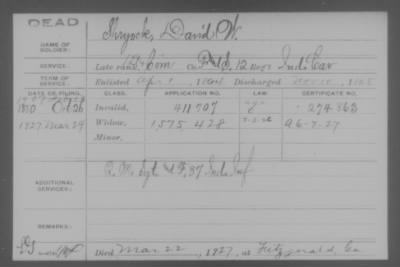 DEAD
Shryock, David W.
NAME OF SOLDIER:
SERVICE: Late rank, Com Co. 12 Regt Ind. Cav
TERM OF SERVICE: Enlisted Apr 1, 1864 Discharged Nov 10, 1865
DATE OF FILING. CLASS. APPLICATION NO. LAW. CERTIFICATE NO.
1880 Oct 26 Invalid, 411707 274863
1927 Mar 29 Widow, 1575428 A 6-7-27
Minor,
ADDITIONAL SERVICES: Q. M. Sgt F, 87 Ind. Inf
REMARKS:
Died Mar 22, 1927, at Fitzgerald, Ga